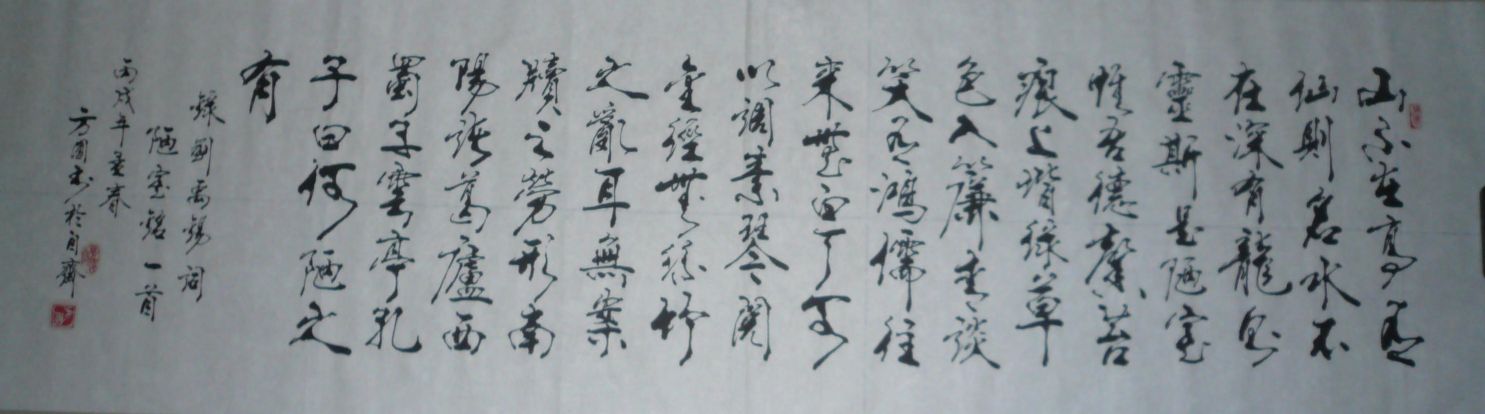 山不在高有
仙則名水不
在深有龍則
靈斯是陋室
惟吾德馨苔
痕上堦緑草
色入簾青談
笑有鴻儒往
来無白丁可
以調素琴閱
金經無絲竹
之亂耳無案
牘之勞形南
陽諸葛廬西
蜀子雲亭孔
子曰何陋之
有
錄劉禹錫詞
陋室銘一首
丙戌年孟春
方圓書於自齋